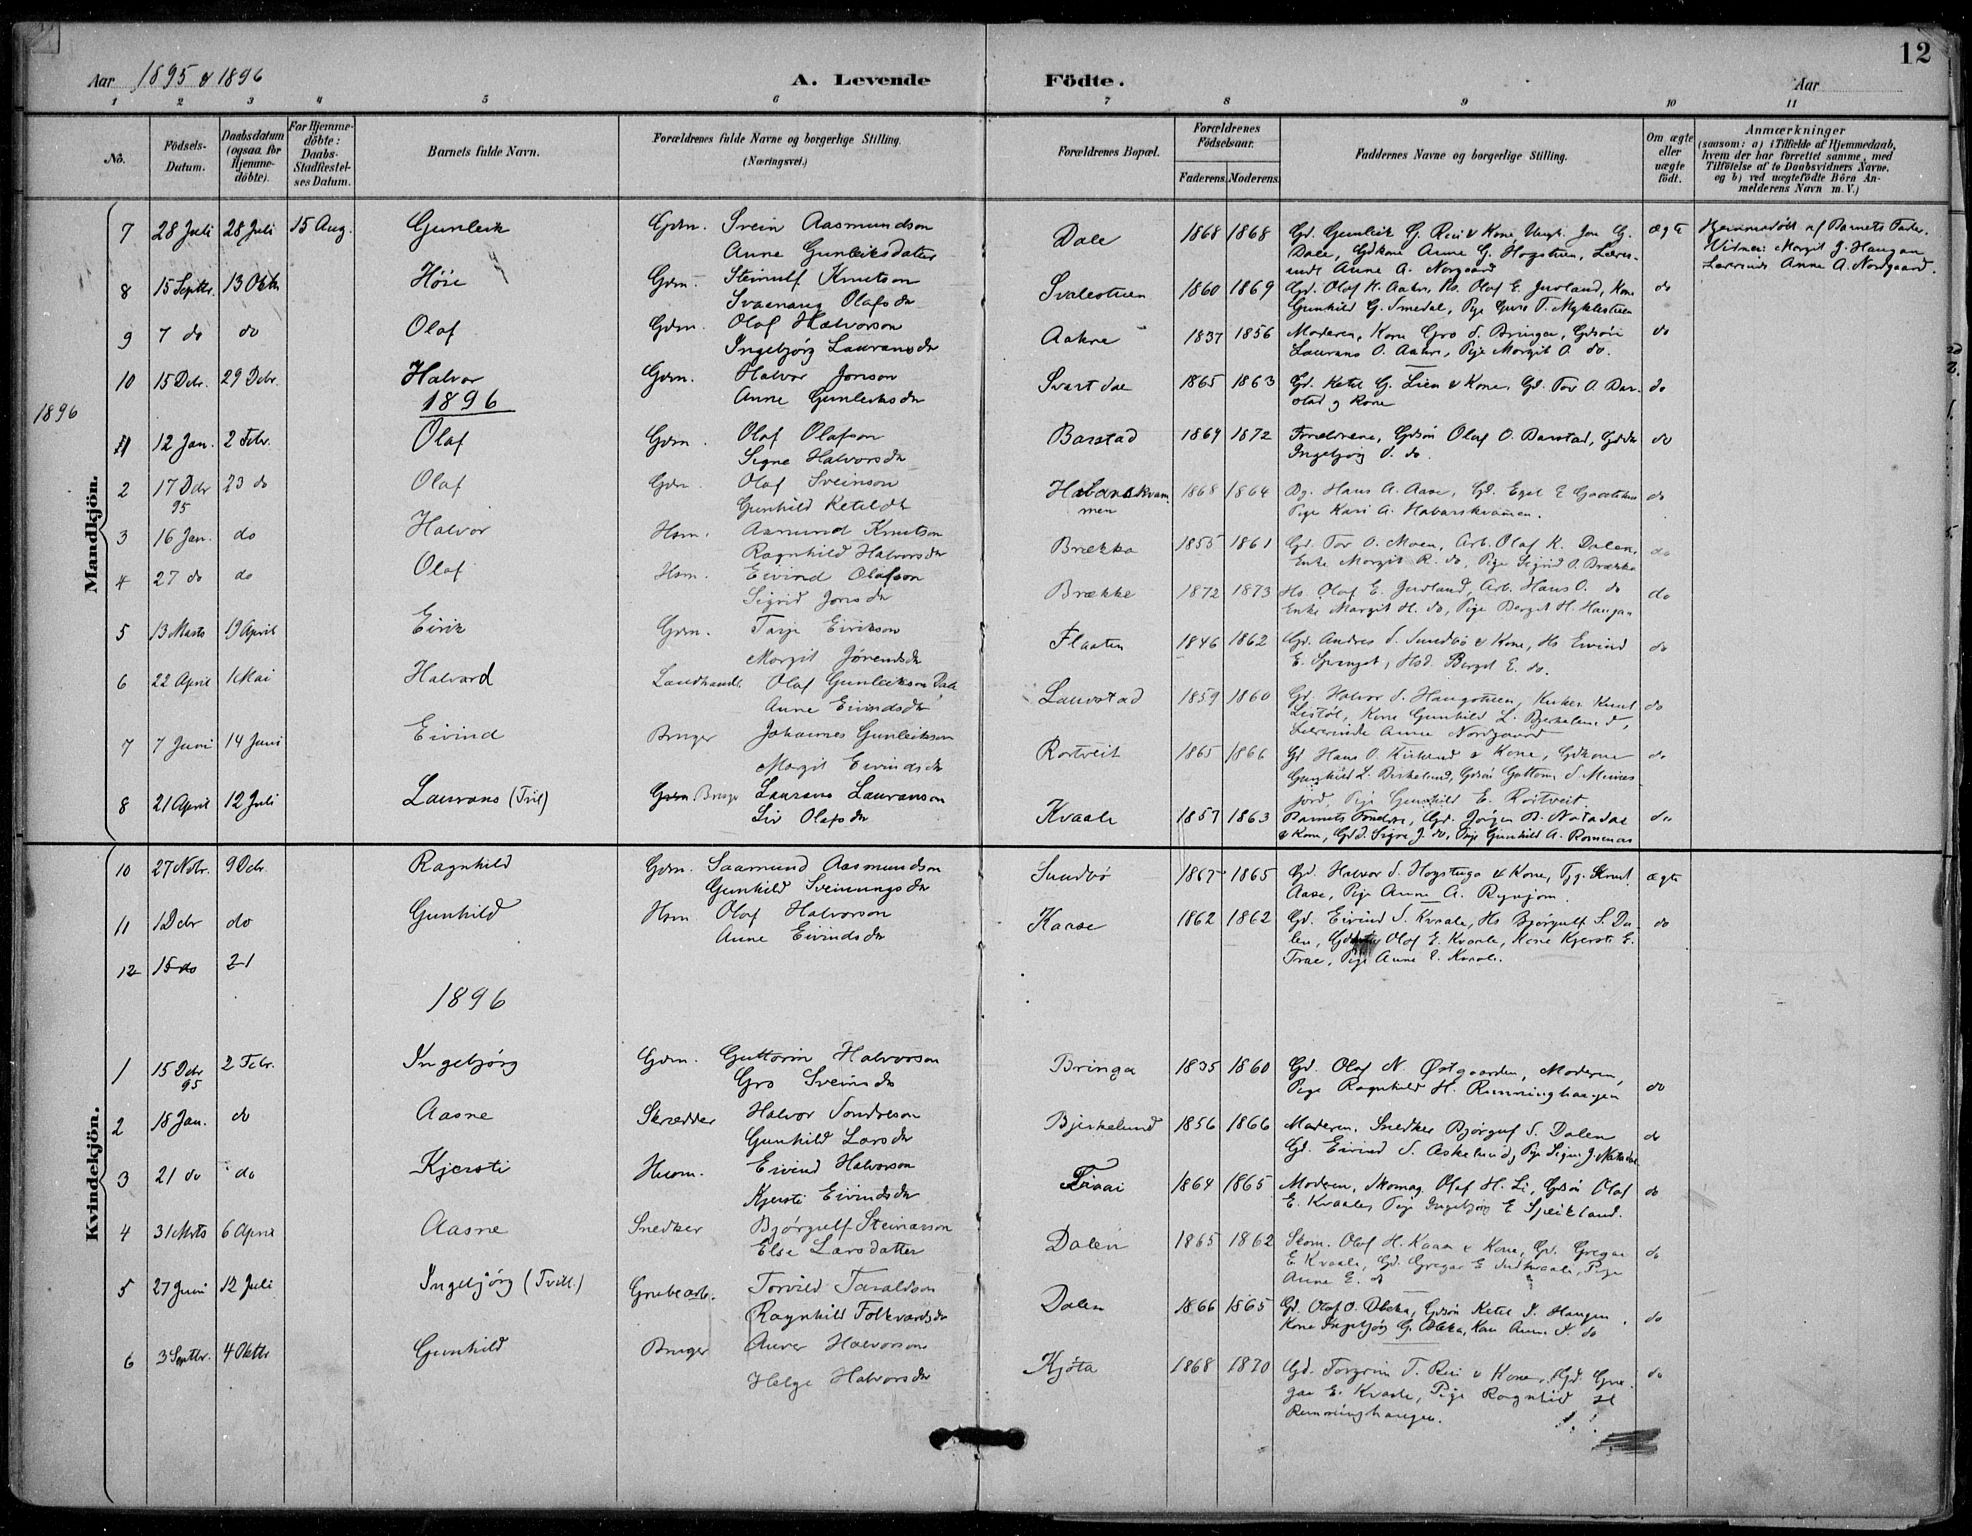 12
Aar 1895 & 1896 A. Levende Födte. Aar
1 2 3 4 5 6 7 8 9 10 11
No. Födsels-Datum. Daabsdatum (ogsaa for Hjemme-döbte). For Hjemme-döbte: Daabs-Stadfæstel-ses Datum. Barnets fulde Navn. Forældrenes fulde Navne og borgerlige Stilling. (Næringsvei.) Forældrenes Bopæl. Forældrenes Födselsaar. Faderens. Moderens. Faddernes Navne og borgerlige Stilling. Om ægte eller uægte födt. Anmærkninger
(saasom: a) i Tilfælde af Hjemmedaab, hvem der har forrettet samme, med Tilföielse af to Daabsvidners Navne, og b) ved uægtefödte Börn An-melderens Navn m. V.)
Mandkjön.
7 28 Juli 28 Juli 15 Aug. Gunleik Gdm. Svein Aasmundson Dale 1868 1868 Gd. Gunleik G. Rui & Kone, Ungk. Jon G. ægte Hjemmedöbt af Barnets Fader.
Anne Gunleiksdatter Dale, Gdkone Anne G. Hogstuen, Lærer- Vidner: Margit J. Haugan
inde Anne A. Norgaard Lærerinde Anne A. Nordgaard.
8 15 Septbr. 13 Oktb. Höie Gdm. Steinulf Knutson Svalestuen 1860 1869 Gd. Olaf K. Aakre, Hs. Olaf E. Juvland, Kone do
Svaenaug Olafsdr Gunhild G. Smedal, Pige Guro T. Myklestuen
9 7 do do Olaf Gdm. Olaf Halvorson Aakre 1837 1856 Moderen, Kone Gro S. Bringa, Gdsön do
Ingebjörg Lauransdr Laurans O. Aakre, Pige Margit O. do.
10 15 Dcbr. 29 Dcbr. Halvor Gdm. Halvor Jonson Svartdal 1865 1863 Gd. Ketil G. Lien & Kone, Gd. Tor A. Bar- do
Anne Gunleiksdr stad og Kone
1896 1896
1 12 Jan. 2 Febr. Olaf Gdm. Olaf Olafson Barstad 1864 1872 Forældrene, Gdsön Olaf O. Barstad, Gddr do
Signe Halvorsdr Ingebjörg O. do.
2 17 Dcbr 95 23 do Olaf Gdm. Olaf Sveinson Habarskvammen 1868 1864 Bg. Hans A. Aase, Gd. Egil E. do
Gunhild Ketilsdr Pige Kari A. Habarskvamen.
3 16 Jan. do Halvor Hsm. Aamund Knutson Brække 1855 1861 Gd. Tor O. Moen, Arb. Olaf K. Dalen, do
Ragnhild Halvorsdr Enke Margit R. do, Pige Sigrid O. Brække
4 27 do do Olaf Hsm. Eivind Olafson Brække 1872 1873 Hs. Olaf E. Juvland, Arb. Hans O. do do
Sigrid Jonsdr Enke Margit H. do, Pige Bergit H. Haugan
5 13 Marts 19 April Eirik Gdm. Tarje Eirikson Flaaten 1846 1862 Gd. Andres S. Sundbö & Kone, Hs. Eivind do
Margit Jörensdr E. Springet, Hsd. Bergit E. do.
6 22 April 1 Mai Halvard Landhandl. Olaf Gunleikson Dale Lauvstad 1859 1860 Gd. Halvor S. Haugstuen, Knut do
Anne Eivindsdr Listöl, Kone Gunhild L. Bjerkelund,
Lærerinde Anne Nordgaard
7 7 Juni 14 Juni Eivind Bruger Johannes Gunleikson Rortveit 1865 1866 Gd Hans O. & Kone, Gdkone do
Margit Eivindsdr Gunhild L. Birkelund, Gdsön Guttorm S. Meines-
jord, Pige Gunhild E. Rortveit.
8 21 April 12 Juli Laurans (Tvil) Gdm. Bruger Laurans Lauranson Kvaale 1857 1863 Barnets Forældre, Gd. Jörgen B. Natadal do
Liv Olafsdr & Kone, Gdd. Signe J. do, Pige Gunhild A. Romenas
Kvindekjön.
10 27 Nvbr. 9 Dcbr. Ragnhild Gdm. Saamund Aasmundson Sundbö 1867 1865 Gd. Halvor S. Hogstuga & Kone, Tjg. Knut ægte
Gunhild Sveinungsdr Aase, Pige Anne A. Rynjom.
11 1 Dcbr do Gunhild Hsm Olaf Halvorson Kaase 1862 1862 Gd. Eivind S. Kvaale, Hs. Björgulf S. Da- do
Anne Eivindsdr len, Olaf E. Kvaale, Kone Kjersti E.
Traae, Pige Anne E. Kvaale.
12 15 do 21
1896
1 15 Dcbr 95 2 Febr. Ingebjörg Gdm. Guttorm Halvorson Bringa 1835 1860 Gd. Olaf N. Östgaarden, Moderen,
Gro Sveinsdr Pige Ragnhild H. Runninghaugen do
2 18 Jan. do Aasne Skrædder Halvor Sondreson Bjerkelund 1856 1866 Moderen, Snedker Björgulf S. Dalen do
Gunhild Larsdr Gd. Eivind S. Askelund, Pige Signe J. Natadal
3 21 do do Kjersti Husm. Eivind Halvorson 1864 1865 Moderen, Skomag. Olaf H. Li, Gdsön Olaf do
Kjersti Eivindsdr E. Kvaale, Pige Ingebjörg E. Speikland.
4 31 Mrts 6 April Aasne Snedker Björgulf Steinarson Dalen 1865 1862 Skom. Olaf H. Kaasa & Kone, Gd. Gregar do
Else Larsdatter E Kvaale, Gd. Gregar E. Pige
Anne E. do
5 27 Juni 12 Juli Ingebjörg (Tvill.) Grubearb. Torvild Taraldson Dalen 1866 1865 Gd. Olaf O. Gdsön Ketil S. Haugen, do
Ragnhild Folkvardsdr Kone Ingebjörg G. Kone Anne S. do
6 3 Septbr. 4 Oktbr Gunhild Bruger Halvorson Kjöta 1868 1870 Gd. Torgrim T. Rui & Kone, Gd. Gre- do
Helge Halvorsdr gar E. Kvaale, Pige Ragnhild H
Runninghaugen.